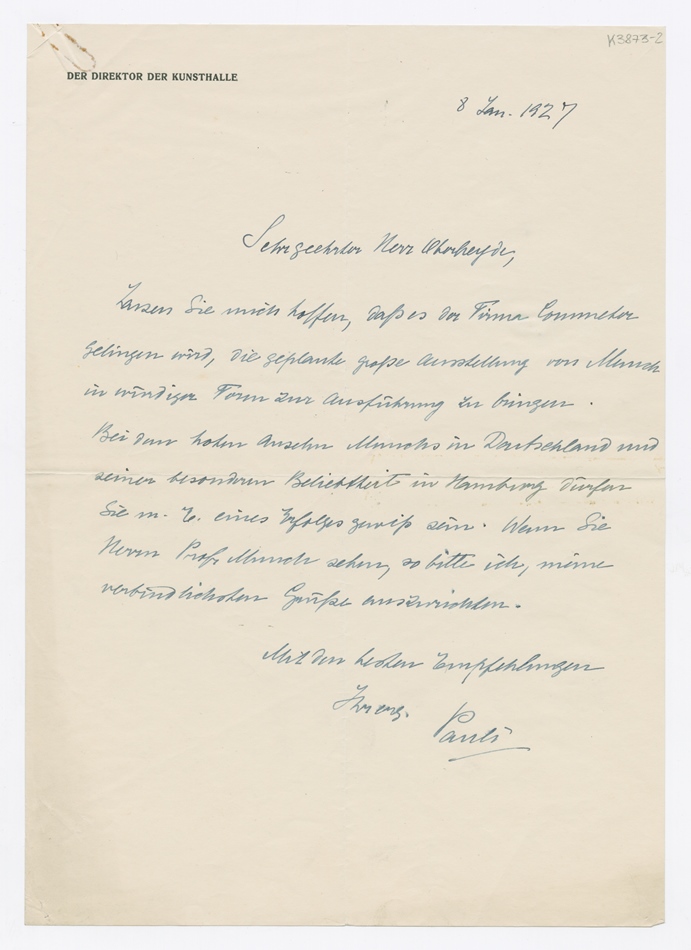 K3873-2
DER DIREKTOR DER KUNSTHALLE
8 Jan. 1927
Sehr geehrter Herr Oberheyde,
Lassen Sie mich hoffen, daß es der Firma Commeter
gelingen wird, die geplante große Ausstellung von Munch
in würdiger Form zur Ausführung zu bringen.
Bei dem hohen Ansehn Munchs in Deutschland und
seiner besonderen Beliebtheit in Hamburg dürfen
Sie m. E. eines Erfolges gewiß sein. Wenn Sie
Herrn Prof. Munch sehen, so bitte ich, meine
verbindlichsten Grüße auszurichten.
Mit den besten Empfehlungen
Ihr erg.
Pauli